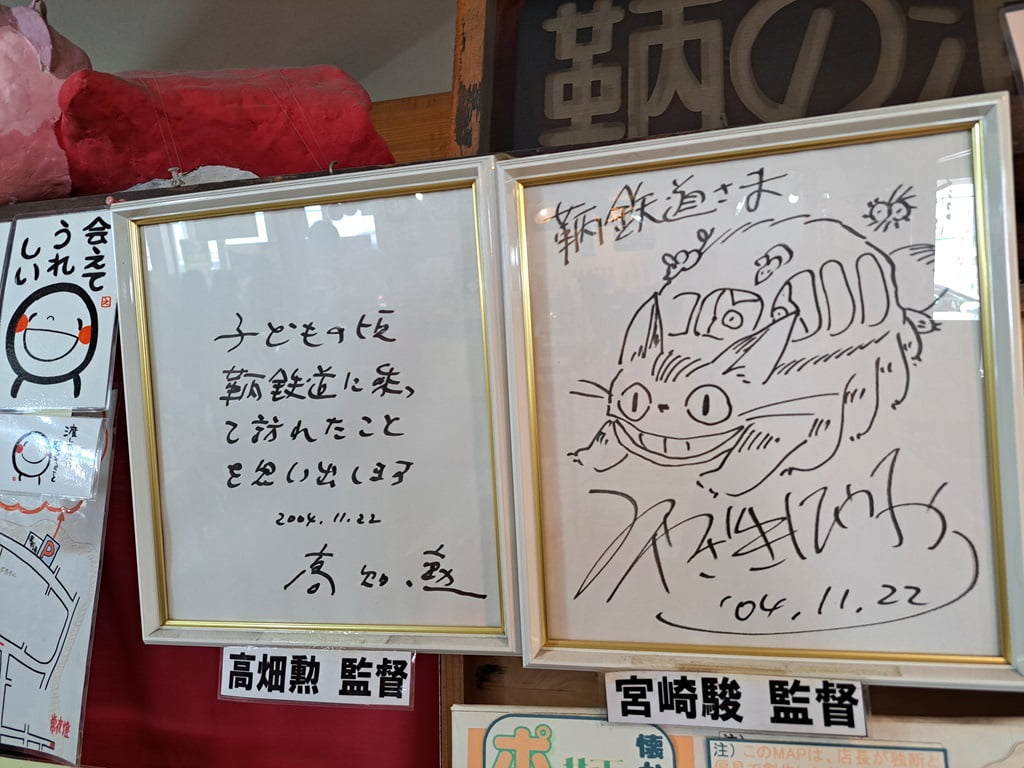 鞆の
会えて
うれ
しい
子どもの頃
鞆鉄道に乗っ
て訪れたこと
を思い出します
2004.11.22
高畑 勲
高畑勲 監督
鞆鉄道さま
みやざきはやお
'04.11.22
宮崎駿 監督
P
常夜燈
ポ
懐か
注）このMAPは、店長が独断と